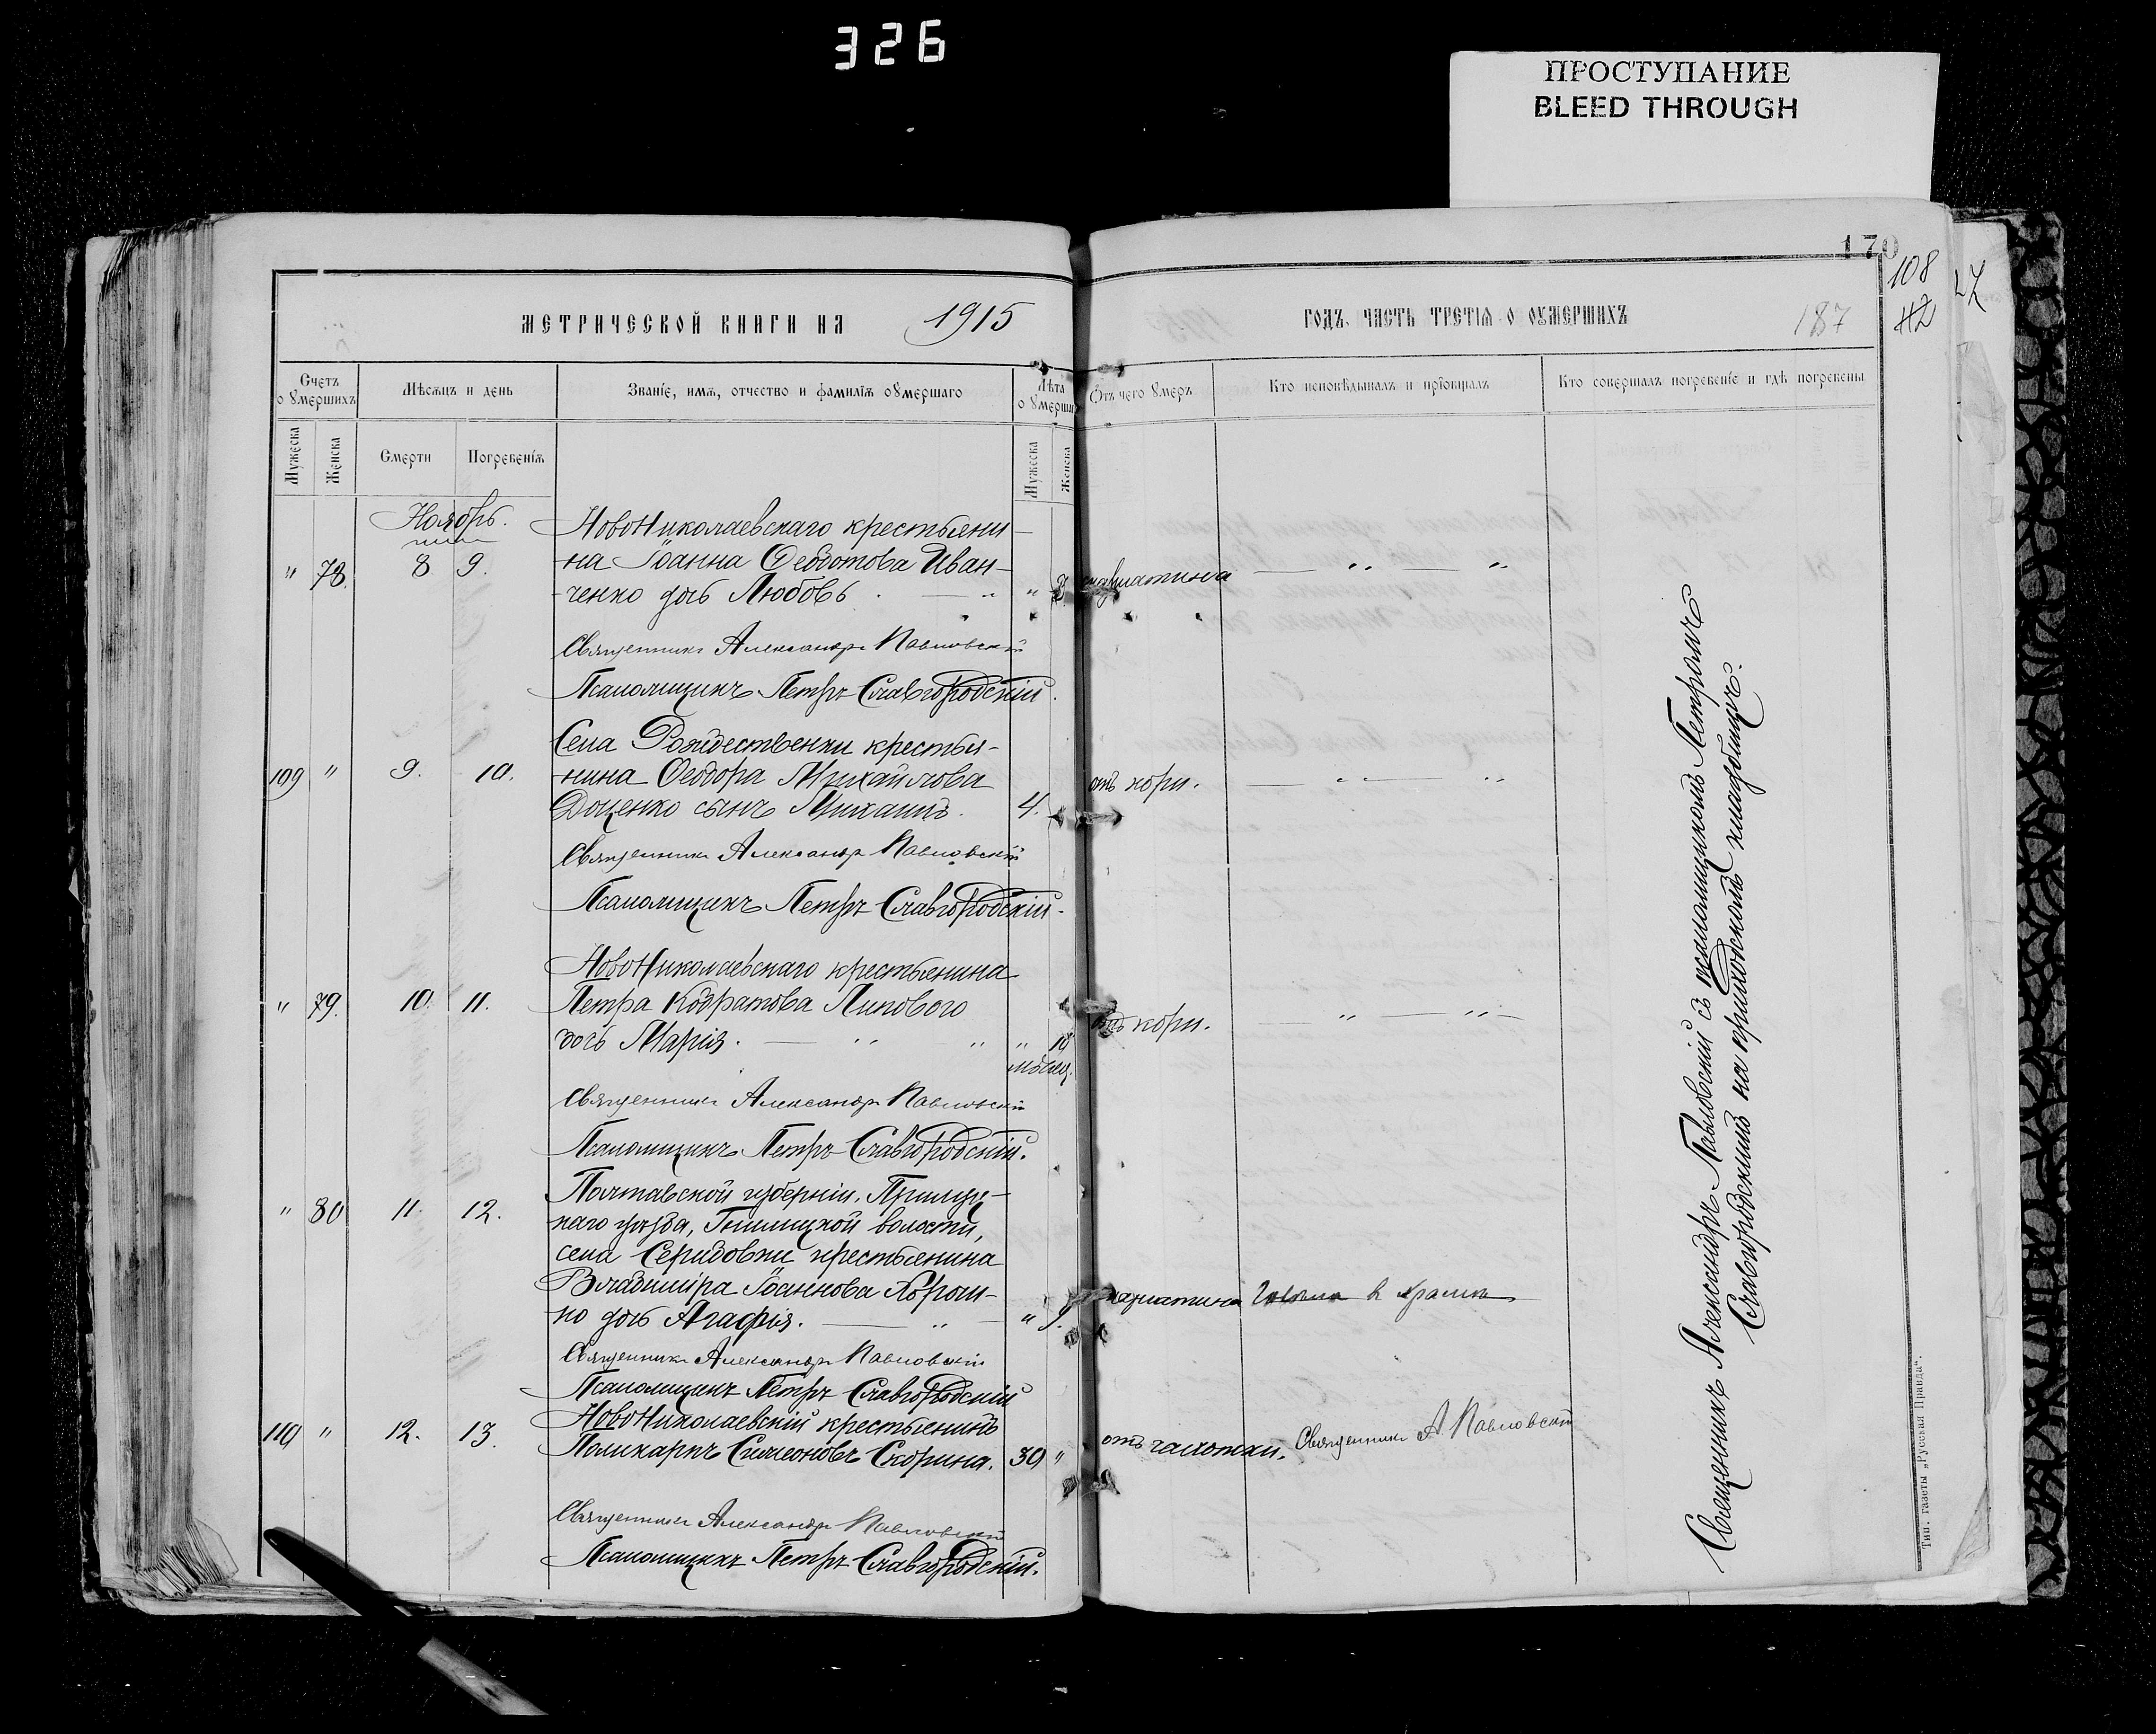 326
ПРОСТУПАНИЕ
BLEED THROUGH
170
108
112
27
МЕТРИЧЕСКОЙ КНИГИ НА 1915
ГОДЪ, ЧАСТЬ ТРЕТІѦ О ОУМЕРШИХЪ
187
Счетъ оумершихъ
Мѣсѧцъ и день
Званїе, имѧ, отчество и фамилїѧ оумершаго
Лѣта оумершаго
Отъ чего умеръ
Кто исповѣдывалъ и прїобщалъ
Кто совершалъ погребенїе и гдѣ погребены
Мужеска
Женска
Смерти
Погребенїѧ
Мужеска
Женска
Ноябрь.
НовоНиколаевскаго крестьяни-
" 78. 8 9. на Іоанна Ѳеодотова Иван-
ченко дочь Любовь " 2 скарлатина
Священникъ Александръ Павловскій
Псаломщикъ Петръ Славгородскій.
Села Рождественки крестья-
109 " 9. 10. нина Ѳеодора Михайлова отъ кори.
Доценко сынъ Михаилъ. 4.
Священникъ Александръ Павловскій
Псаломщикъ Петръ Славгородскій.
НовоНиколаевскаго крестьянина
" 79. 10. 11. Петра Кодратова Липового отъ кори.
дочь Марія. " 10 мѣсяц.
Священникъ Александръ Павловскій
Псаломщикъ Петръ Славгородскій.
Полтавской губерніи, Прилуц-
" 80 11. 12. каго уѣзда, волости,
села крестьянина
Владиміра Іоаннова
но дочь Агафія. " 9. скарлатина в храмѣ
Священникъ Александръ Павловскій
Псаломщикъ Петръ Славгородскій
НовоНиколаевскій крестьянинъ
110 " 12. 13. Поликарпъ Симеоновъ Скорина. 39 " отъ чахотки. Священникъ А. Павловскій
Священникъ Александръ Павловскій
Псаломщикъ Петръ Славгородскій.
Священникъ Александръ Павловскій съ псаломщикомъ Петромъ
Славгородскимъ на приходскомъ кладбищѣ.
Тип. газеты „Русская Правда“.